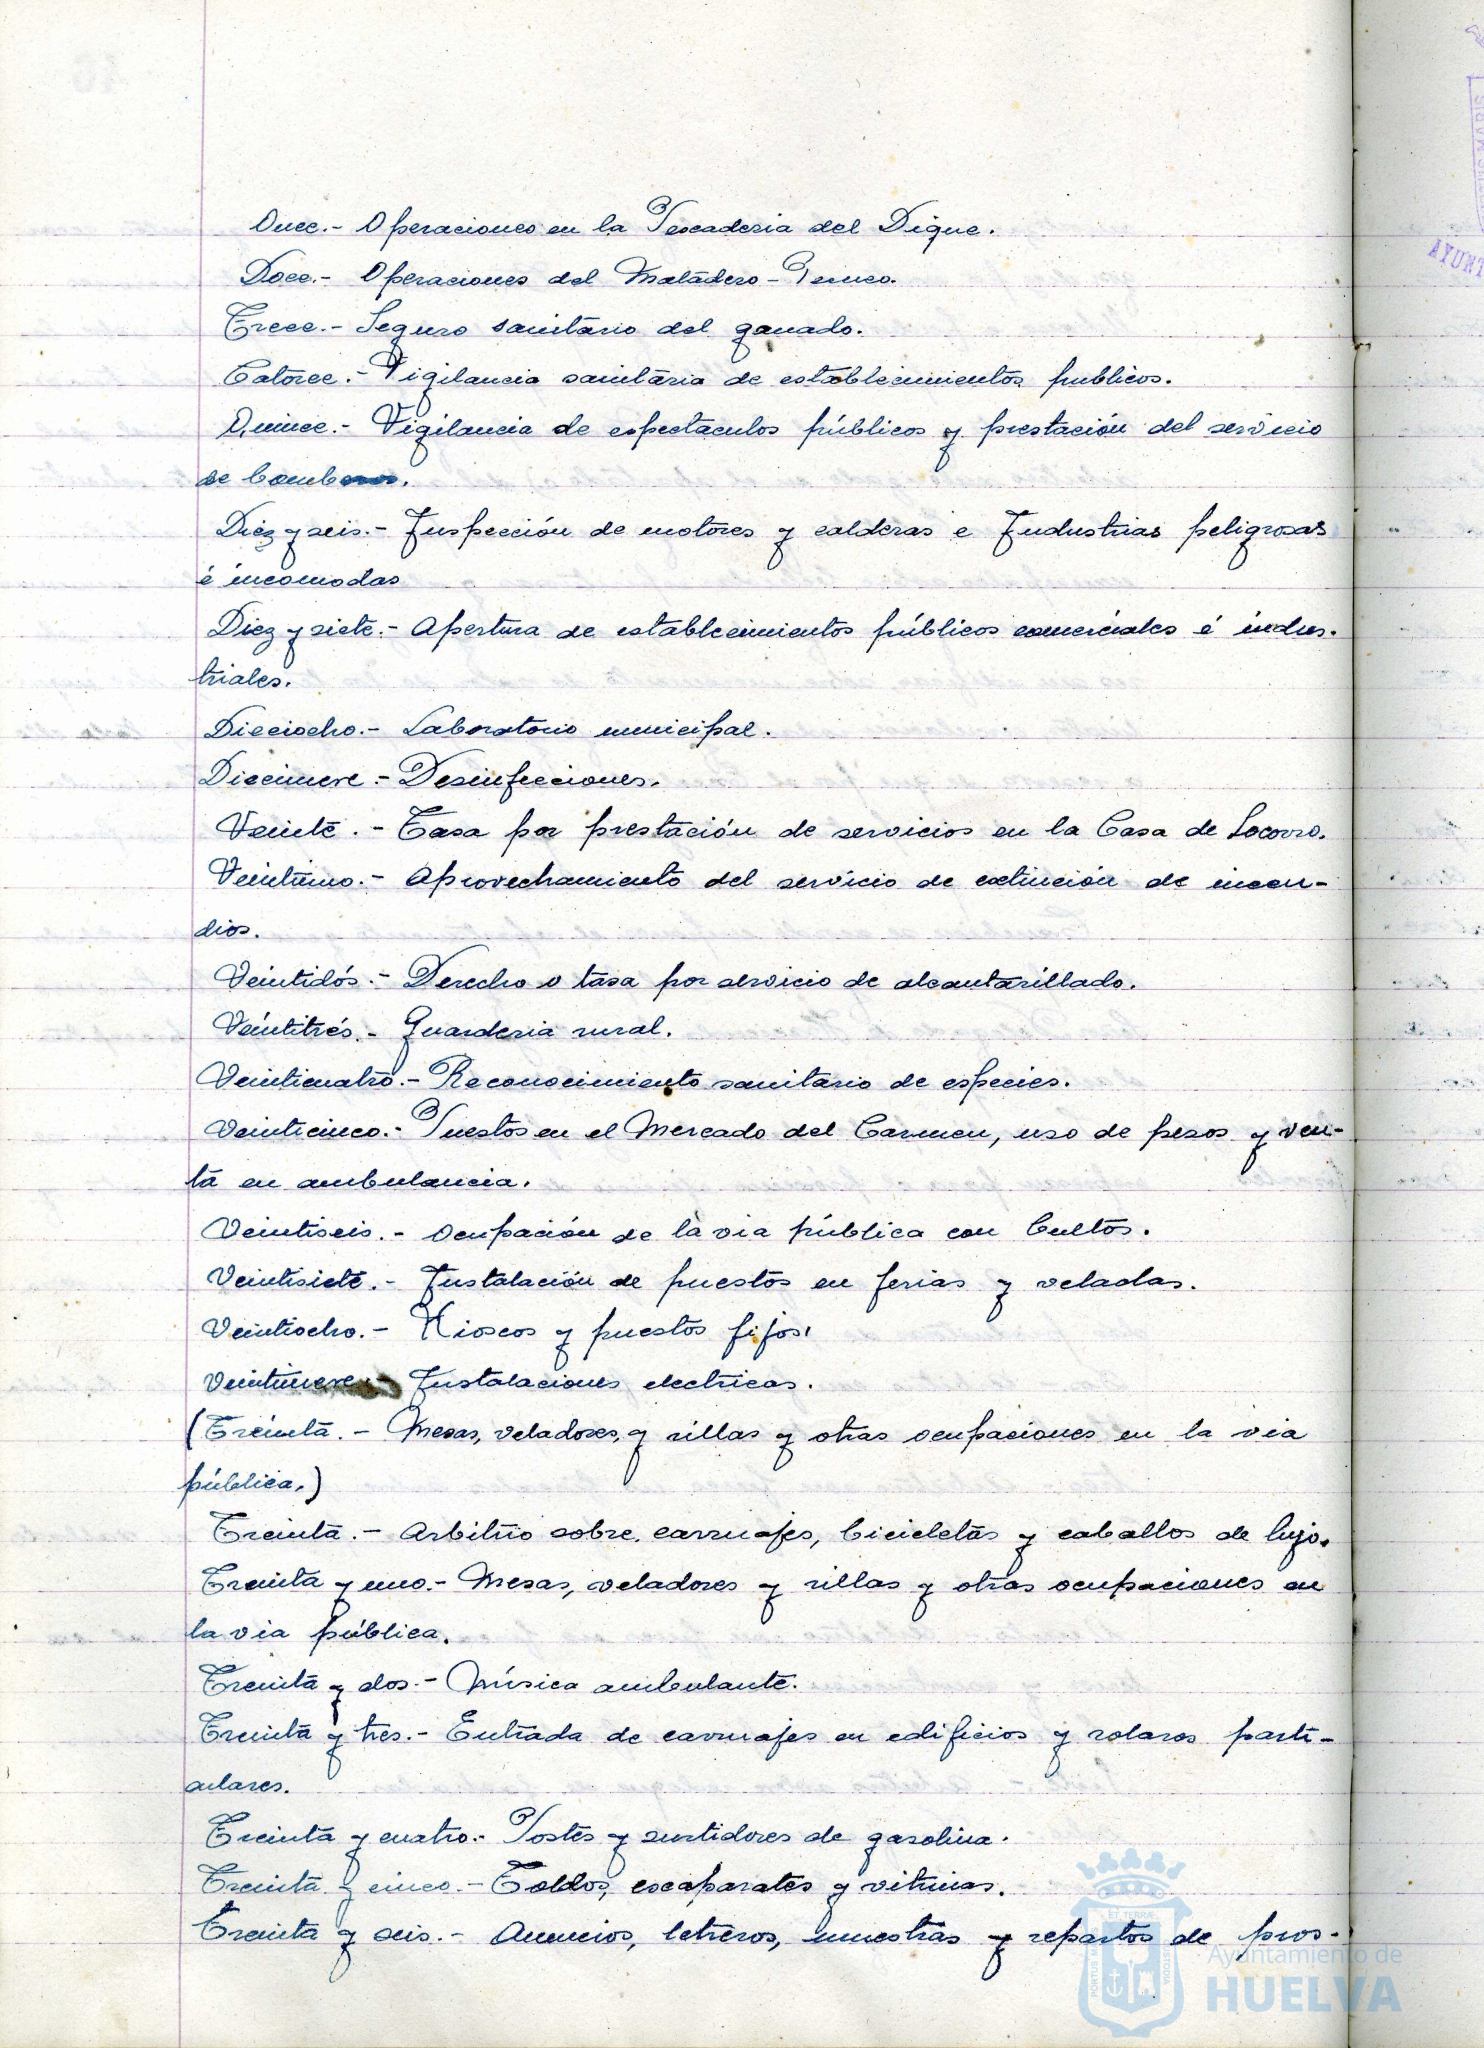 Once.- Operaciones en la Pescaderia del Dique.
Doce.- Operaciones del Matadero-
Trece.- Seguro sanitário del ganado.
Catorce.- Vigilancia sanitária de establecimientos publicos.
Quince.- Vigilancia de espectaculos públicos y prestación del servicio
de bomberos.
Diez y seis.- Inspección de motores y calderas e Industrias peligrosas
é incomodas
Diez y siete.- Apertura de establecimientos públicos comerciales é indus-
triales.
Dieciocho.- Laboratorio municipal.
Diecinueve.- Desinfecciones.
Veinte.- Tasa por prestación de servicios en la Casa de Socorro.
Veintiuno.- Aprovechamiento del servicio de extinción de incen-
dios.
Veintidós.- Derecho o tasa por servicio de alcantarillado.
Veintitrés.- Guarderia rural.
Veinticuatro.- Reconocimiento sanitario de especies.
Veinticinco.- Puestos en el Mercado del Carmen, uso de pesos y ven-
ta en ambulancia.
Veintiseis.- Ocupación de la via pública con bultos.
Veintisiete.- Instalación de puestos en ferias y veladas.
Veintiocho.- Kioscos y puestos fijos.
Veintinueve.- Instalaciones electricas.
(Treinta.- Mesas, veladores, y sillas y otras ocupaciones en la via
pública.)
Treinta.- Arbitrio sobre carruajes, bicicletas y caballos de lujo.
Treinta y uno.- Mesas, veladores y sillas y otras ocupaciones en
la via pública.
Treinta y dos.- Música ambulante.
Treinta y tres.- Entrada de carruajes en edificios y solares parti-
culares.
Treinta y cuatro.- Postes y surtidores de gasolina.
Treinta y cinco.- Toldos, escaparates y vitrinas.
Treinta y seis.- Anuncios, letreros, muestras y repartos de pros-
Ayuntamiento de
HUELVA
AYUNT